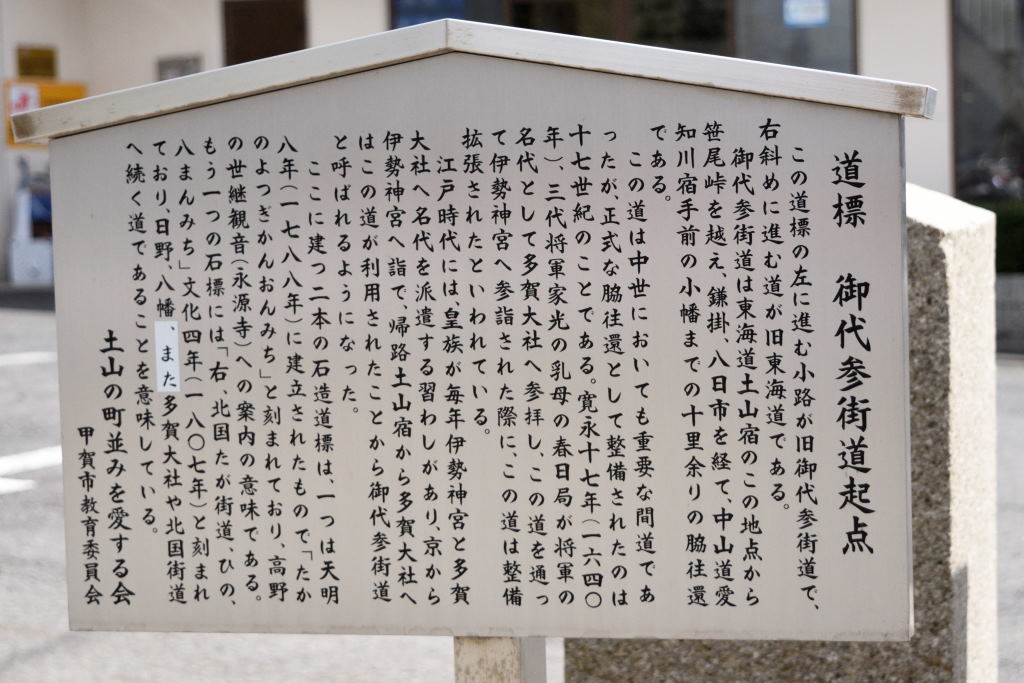 道標　御代参街道起点
この道標の左に進む小路が旧御代参街道で、
右斜めに進む道が旧東海道である。
御代参街道は東海道土山宿のこの地点から
笹尾峠を越え、鎌掛、八日市を経て、中山道愛
知川宿手前の小幡までの十里余りの脇往還
である。
この道は中世においても重要な間道であ
ったが、正式な脇往還として整備されたのは
十七世紀のことである。寛永十七年(一六四〇
年)、三代将軍家光の乳母の春日局が将軍の
名代として多賀大社へ参拝し、この道を通っ
て伊勢神宮へ参詣された際に、この道は整備
拡張されたといわれている。
江戸時代には、皇族が毎年伊勢神宮と多賀
大社へ名代を派遣する習わしがあり、京から
伊勢神宮へ詣で、帰路土山宿から多賀大社へ
はこの道が利用されたことから御代参街道
と呼ばれるようになった。
ここに建つ二本の石造道標は、一つは天明
八年(一七八八年)に建立されたもので「たか
のよつぎかんおんみち」と刻まれており、高野
の世継観音(永源寺)への案内の意味である。
もう一つの石標には「右、北国たが街道、ひの、
八まんみち」文化四年(一八〇七年)と刻まれ
ており、日野、八幡、また多賀大社や北国街道
へ続く道であることを意味している。
土山の町並みを愛する会
甲賀市教育委員会